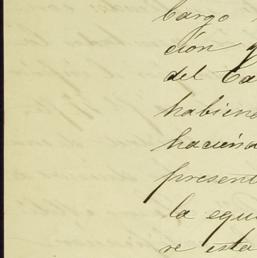 cargo
ción q
del Ca
habien
hacien
present
la equi
re esta